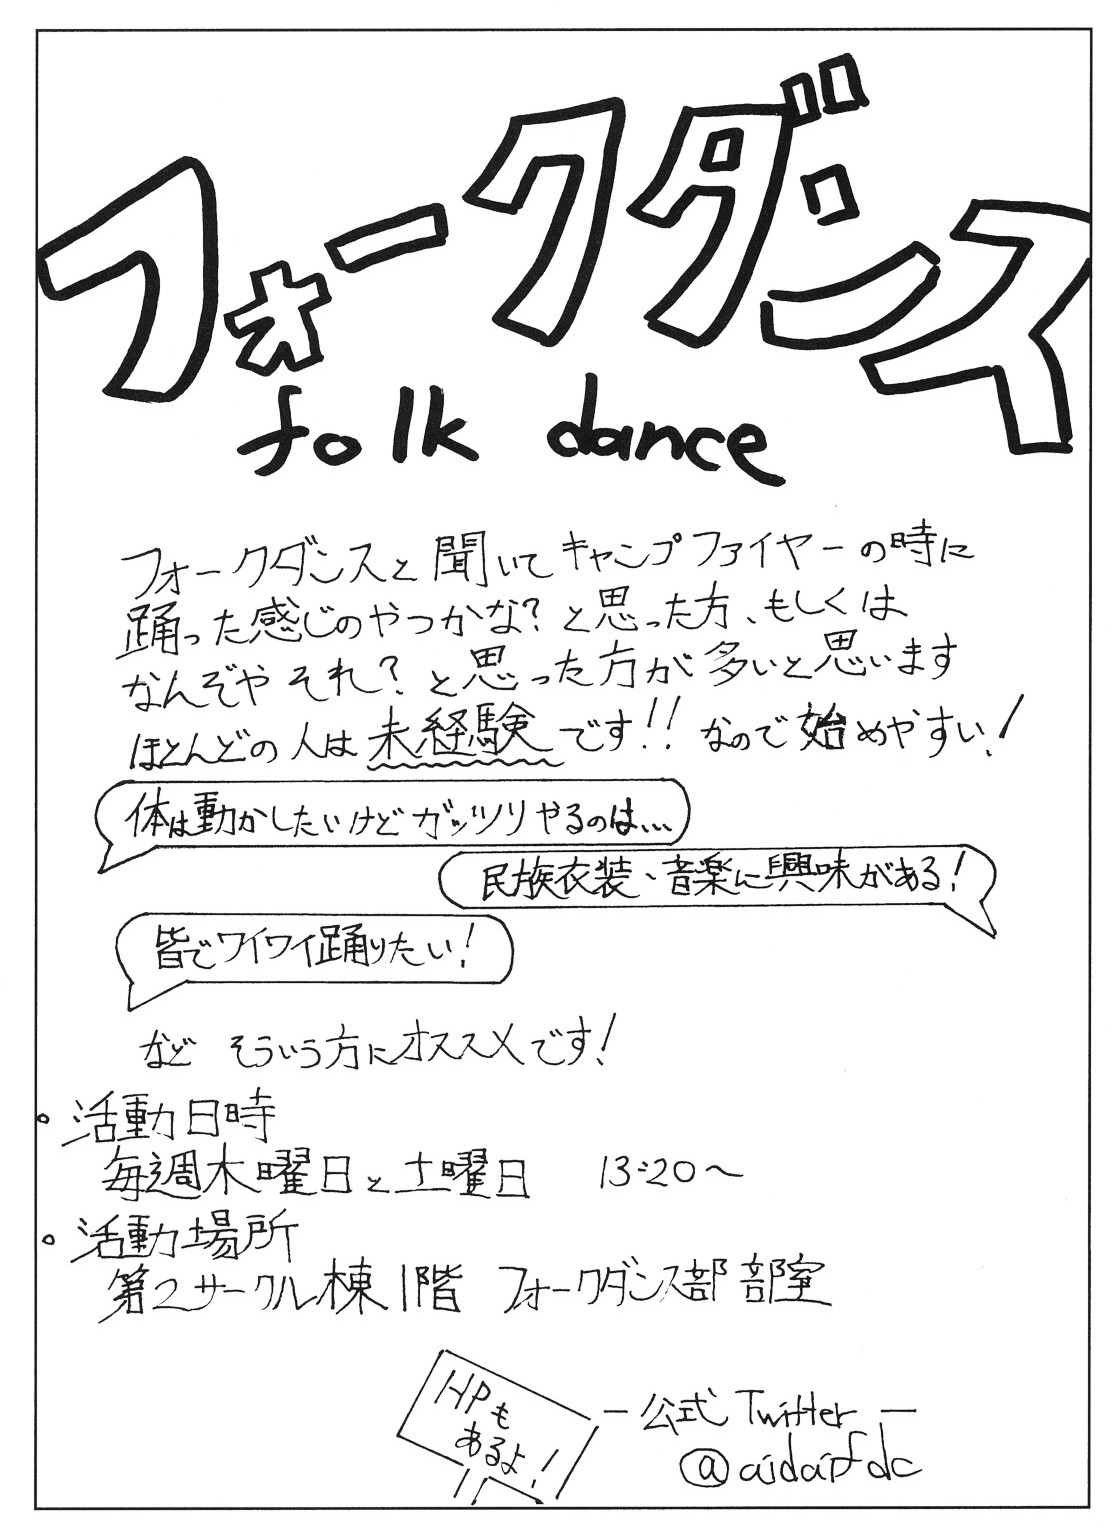 フォークダンス
folk dance
フォークダンスと聞いてキャンプファイヤーの時に
踊った感じのやつかな?と思った方、もしくは
なんぞやそれ?と思った方が多いと思います
ほとんどの人は未経験です!!なので始めやすい!
体は動かしたいけどガッツリやるのは...
民族衣装、音楽に興味がある!
皆でワイワイ踊りたい!
など そういう方にオススメです!
・活動日時
毎週木曜日と土曜日 13:20〜
・活動場所
第2サークル棟1階 フォークダンス部部室
HPも
あるよ!
—公式Twitter—
@aidaifdc